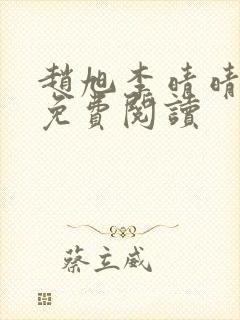 趙旭李晴晴
免費閱讀
蔡立威